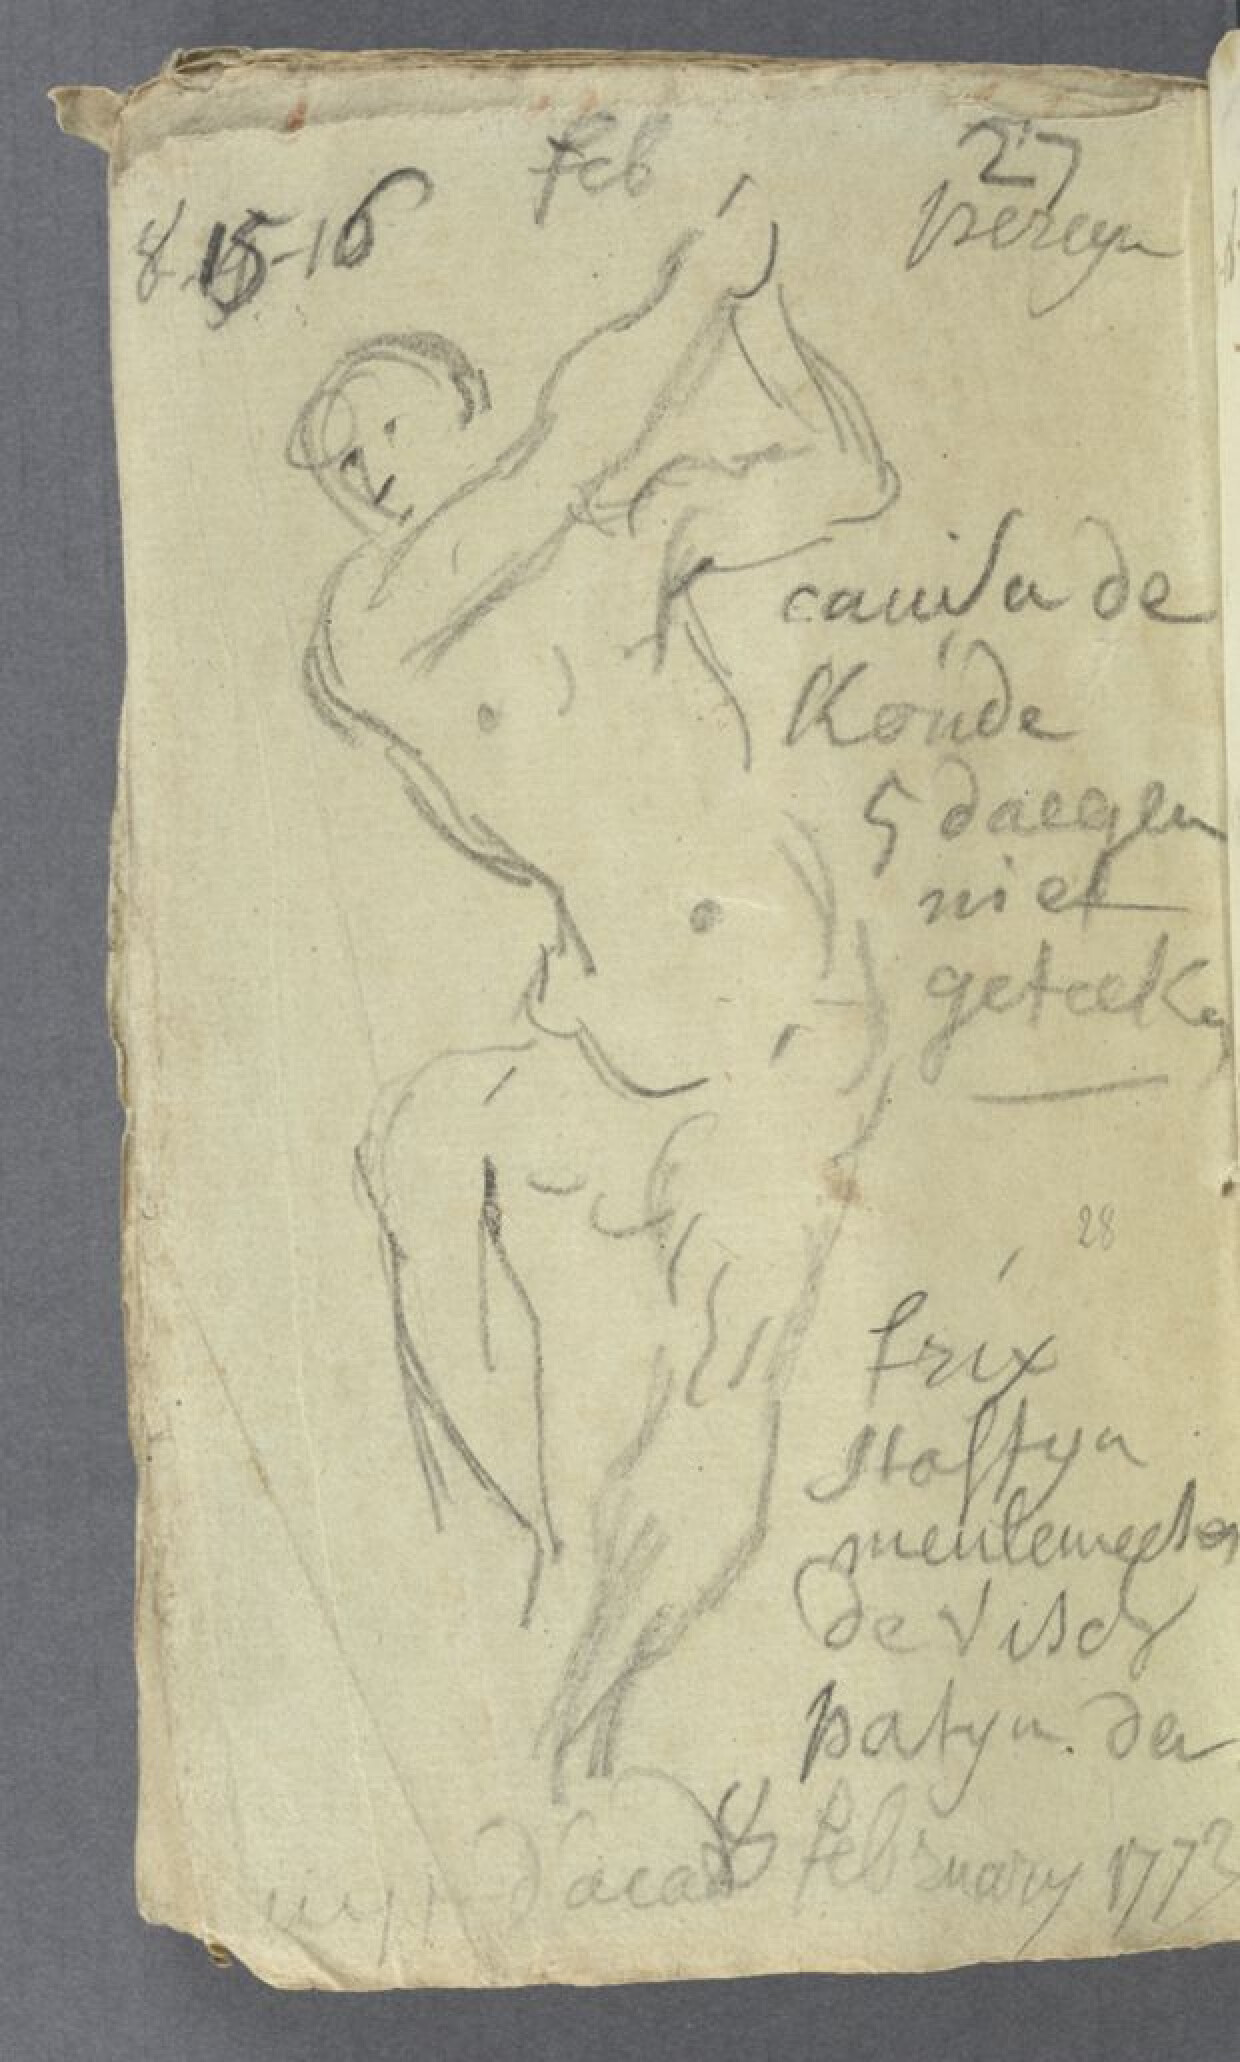 feb 27
8-15-16
pereyn
causa de
Koude
5 daegen
niet
geteek
28
frix
staffyn
meulemeester
de visch
patyn. den
d'acad 8 february 1773